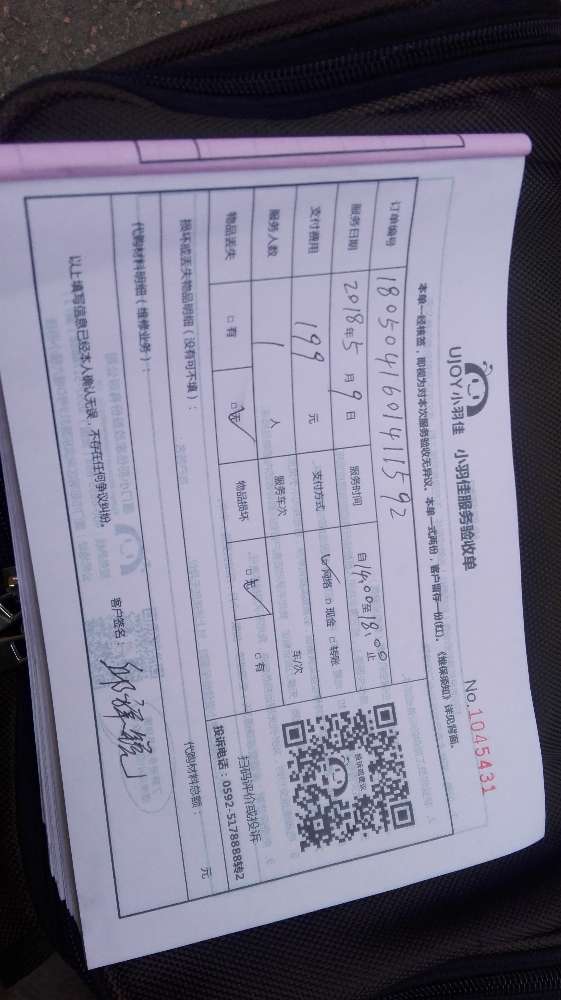 UJOY小羽佳 小羽佳服务验收单
No.1045431
本单一经核签，即视为对本次服务验收无异议。本单一式两份，客户留存一份(红)。《维保须知》详见背面。
订单编号 1805041601411592
服务日期 2018年5月9日 服务时间 自14:00至18:00止
支付费用 199 元 支付方式 ☑网络 □现金 □转账
服务人数 1 人 服务车次 车/次
物品丢失 □有 ☑无 物品损坏 ☑无 □有
扫码评价或投诉
投诉电话：0592-5178888转2
损坏或丢失物品明细（没有可不填）：
代购材料明细（维修业务）： 代购材料总额： 元
以上填写信息已经本人确认无误，不存在任何争议纠纷。
客户签名：